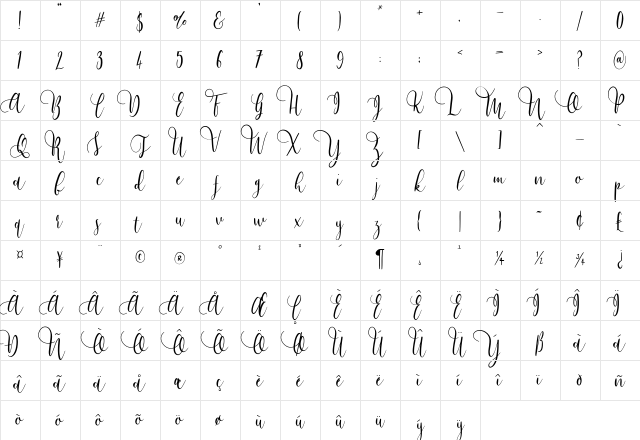 ! " # $ % & ' ( ) * + , - . / 0
1 2 3 4 5 6 7 8 9 : ; < = > ? @
A B C D E F G H I J K L M N O P
Q R S T U V W X Y Z [ \ ] ^ _ `
a b c d e f g h i j k l m n o p
q r s t u v w x y z { | } ~ ¢ £
¤ ¥ ¨ © ® ° ± ´ ¶ ¸ ¹ ¼ ½ ¾ ¿
À Á Â Ã Ä Å Æ Ç È É Ê Ë Ì Í Î Ï
Ð Ñ Ò Ó Ô Õ Ö Ø Ù Ú Û Ü Ý ß à á
â ã ä å æ ç è é ê ë ì í î ï ð ñ
ò ó ô õ ö ø ù ú û ü ý ÿ